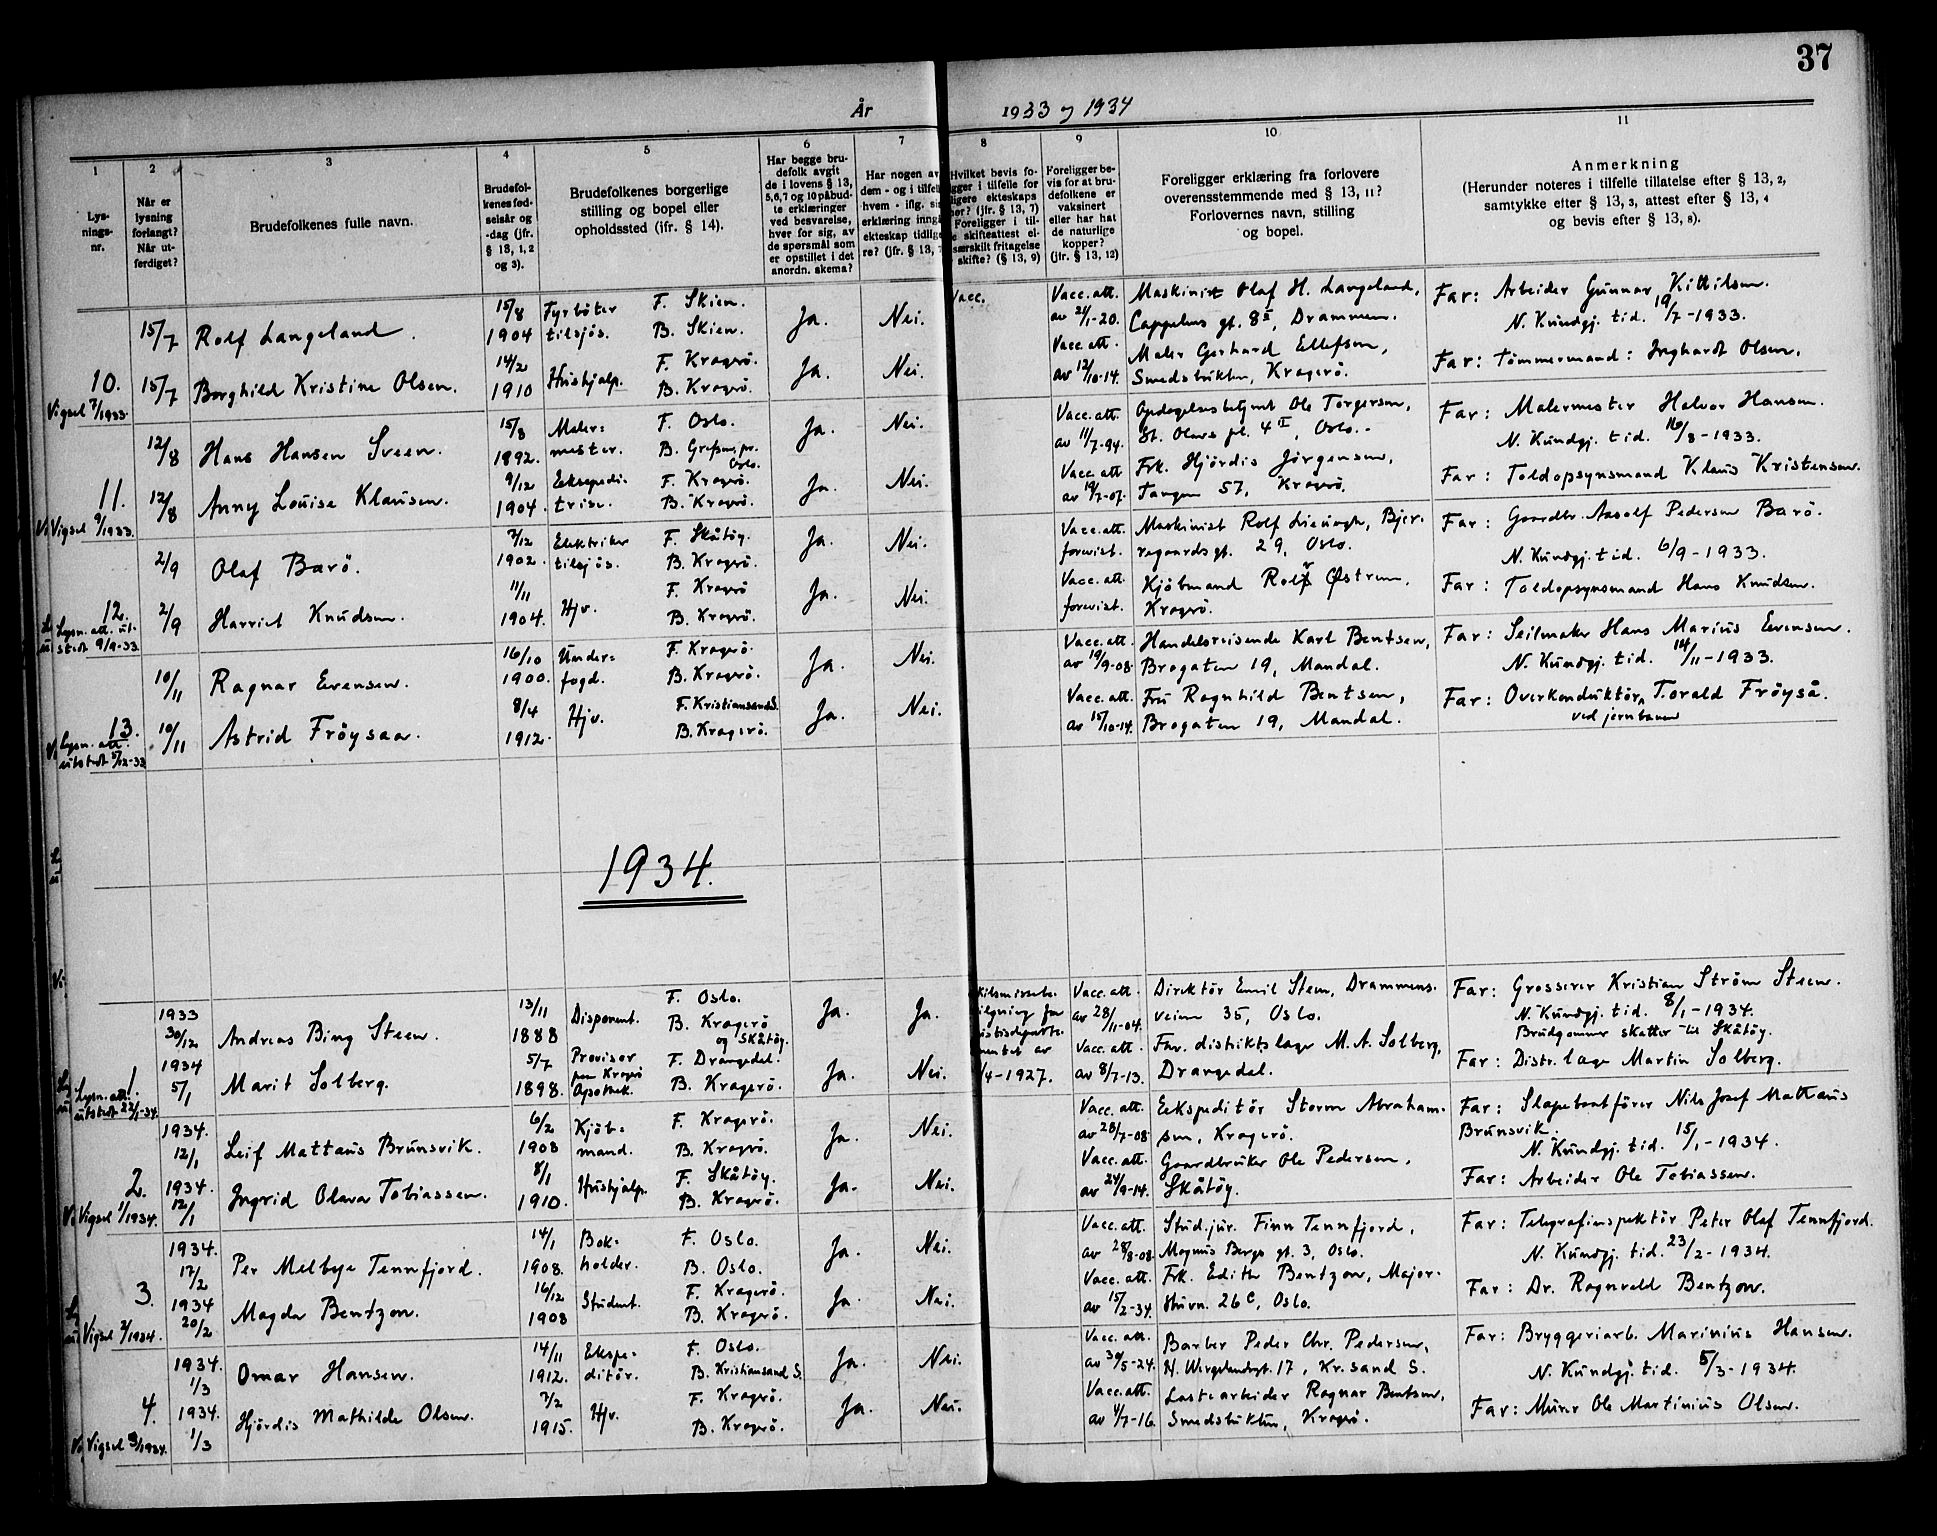 37
År 1933 og 1934
1 2 3 4 5 6 7 8 9 10 11
Lys-
nings-
nr.
Når er
lysning
forlangt?
Når ut-
ferdiget?
Brudefolkenes fulle navn.
Brudefol-
kenes fød-
selsår og
-dag (jfr.
§ 13, 1, 2
og 3).
Brudefolkenes borgerlige
stilling og bopel eller
opholdssted (ifr. § 14).
Har begge bru-
defolk avgit
de i lovens § 13,
5,6,7 og 10 påbud-
te erklæringer
ved besvarelse,
hver for sig, av
de spørsmål som
er opstillet i det
anordn. skema?
Har nogen av
dem - og i tilfell
hvem - iflg. si
erklæring inngå
ekteskap tidlige
re? (jfr. § 13, 7
Hvilket bevis fo-
gger i tilfelle for
ligere ekteskaps
ner? (jfr. § 13, 7)
Foreligger i til-
e skifteattest el-
særskilt fritagelse
skifte? (§ 13, 9)
Foreligger be-
vis for at bru-
defolkene er
vaksinert
eller har hat
de naturlige
kopper?
(jfr. § 13, 12)
Foreligger erklæring fra forlovere
overensstemmende med § 13, 11?
Forlovernes navn, stilling
og bopel.
Anmerkning
(Herunder noteres i tilfelle tillatelse efter § 13, 2,
samtykke efter § 13, 3, attest efter § 13, 4
og bevis efter § 13, 8).
10.
Vigsel 7/1933.
15/7 Rolf Langeland. 15/8 1904 Fyrböter tilsjös. F. Skien. B. Skien. Ja. Nei. Vacc. att. av 21/1-20. Maskinist Olaf H. Langeland,
Cappelens gt. 8 I, Drammen. Far: Arbeider Gunnar Kittilsen.
N. Kundgj. tid. 19/7-1933.
15/7 Borghild Kristine Olsen. 14/2 1910 Hushjalp. F. Kragerö. B. Kragerö. Ja. Nei. Vacc. att. av 12/10-14. Maler Gerhard Ellefsen,
Smedsbukten, Kragerö. Far: Tömmermand: Inghardt Olsen.
11.
Vigsel 9/1933.
12/8 Hans Hansen Sveen. 15/8 1892. Maler= mester. F. Oslo. B. Grefsen, pr. Oslo. Ja. Nei. Vacc. att. av 11/7-94. Opdagelsesbetjent Ole Torgersen,
St. Olavs pl. 4 I, Oslo. Far: Malermester Halvor Hansen.
N. Kundgj. tid. 16/8-1933.
12/8 Anny Louise Klausen. 9/12 1904. Ekspedi= trise. F. Kragerö. B. Kragerö. Ja. Nei. Vacc. att av 19/7-07. Frk. Hjördis Jörgensen,
Tangen 57, Kragerö. Far: Toldopsynsmand Klaus Kristensen.
12.
Lysn. att. ut-
stedt 9/9-33.
2/9 Olaf Barö. 7/12 1902. Elektriker tilsjös. F. Skåtöy. B. Kragerö. Ja. Nei. Vacc. att. forevist. Maskinist Rolf Lieungh, Bjer-
regaardsgt. 29, Oslo. Far: Gaardbr. Aasolf Pedersen Barö.
N. Kundgj. tid. 6/9-1933.
2/9 Harriet Knudsen. 11/11 1904. Hjv. F. Kragerö B. Kragerö. Ja. Nei. Vacc. att. forevist. Kjöbmand Rolf Østrem,
Kragerö. Far: Toldopsynsmand Hans Knudsen.
13.
Lysn. att.
utstedt 5/12-33.
10/11 Ragnar Evensen. 16/10 1900. Under= fogd. F. Kragerö. B. Kragerö. Ja. Nei. Vacc. att. av 19/9-08. Handelsreisende Karl Bentsen,
Brogaten 19, Mandal. Far: Seilmaker Hans Marius Evensen.
N. Kundgj. tid. 14/11-1933.
10/11 Astrid Fröysaa. 8/4 1912. Hjv. F. Kristiansand S. B. Kragerö. Ja. Nei. Vacc. att. av 15/10-14. Fru Ragnhild Bentsen,
Brogaten 19, Mandal. Far: Overkonduktör Torald Fröyså.
ved jernbanen
1934.
1.
Lysn. att.
utstedt 22/1-34.
1933 30/12 Andreas Bing Steen. 13/11 1888 Disponent. F. Oslo. B. Kragerö og Skåtöy. Ja. Ja. Vacc. att. av 28/11-04. Direktör Emil Steen, Drammens-
veien 35, Oslo. Far: Grosserer Kristian Ström Steen.
N. Kundgj. tid. 8/1-1934.
Brudgommen skatter til Skåtöy.
1934 5/1 Marit Solberg. 5/7 1898. Provisor paa Kragerö Apothek. F. Drangedal. B. Kragerö. Ja. Nei. 4-1927. Vacc. att. av 8/7-13. Fav. distriktslæge M. A. Solberg,
Drangedal. Far: Distr. læge Martin Solberg.
2.
Vigsel 1/1934.
1934. 12/1 Leif Mattæus Brunsvik. 6/2 1908 Kjöb= mand. F. Kragerö. B. Kragerö. Ja. Nei. Vacc. att. av 28/7-08. Ekspeditör Storm Abraham-
sen, Kragerö. Far: Slæpebaatförer Nils Josef Mattæus
Brunsvik.
N. Kundgj. tid. 15/1-1934.
1934. 12/1 Ingrid Olava Tobiassen. 8/1 1910. Hushjalp. F. Skåtöy. B. Kragerö. Ja. Nei. Vacc. att. av 24/9-14. Gaardbruker Ole Pedersen,
Skåtöy. Far: Arbeider Ole Tobiassen.
3.
Vigsel 2/1934.
1934. 17/2 Per Melbye Tennfjord. 14/1 1908. Bok= holder. F. Oslo. B. Oslo. Ja. Nei. Vacc. att. av 28/8-08. Stud. jur. Finn Tennfjord,
Magnus Bergs gt. 3, Oslo. Far: Telegrafinspektör Peter Olaf Tennfjord.
N. Kundgj. tid. 23/2-1934.
1934 20/2 Magda Bentzon. 16/12 1908 Student. F. Kragerö. B. Kragerö. Ja. Nei. Vacc. att. av 15/2-34. Frk. Edith Bentzon, Major-
stuvn. 26 c, Oslo. Far: Dr. Ragnvald Bentzon.
4.
Vigsel 3/1934.
1934. 1/3 Omar Hansen. 14/11 1912. Ekspe= ditör. F. Oslo. B. Kristiansand S. Ja. Nei. Vacc. att. av 30/5-24. Barber Peder Chr. Pedersen,
H. Wergelandsgt. 17, Kr.sand S. Far: Bryggeriarb. Marinius Hansen.
N. Kundgj. tid. 5/3-1934.
1934. 1/3 Hjördis Mathilde Olsen. 7/2 1915. Hjv. F. Kragerö. B. Kragerö. Ja. Nei. Vacc. att. av 4/7-16. Lastearbeider Ragnar Bentsen,
Smedsbukten, Kragerö. Far: Murer Ole Martinius Olsen.